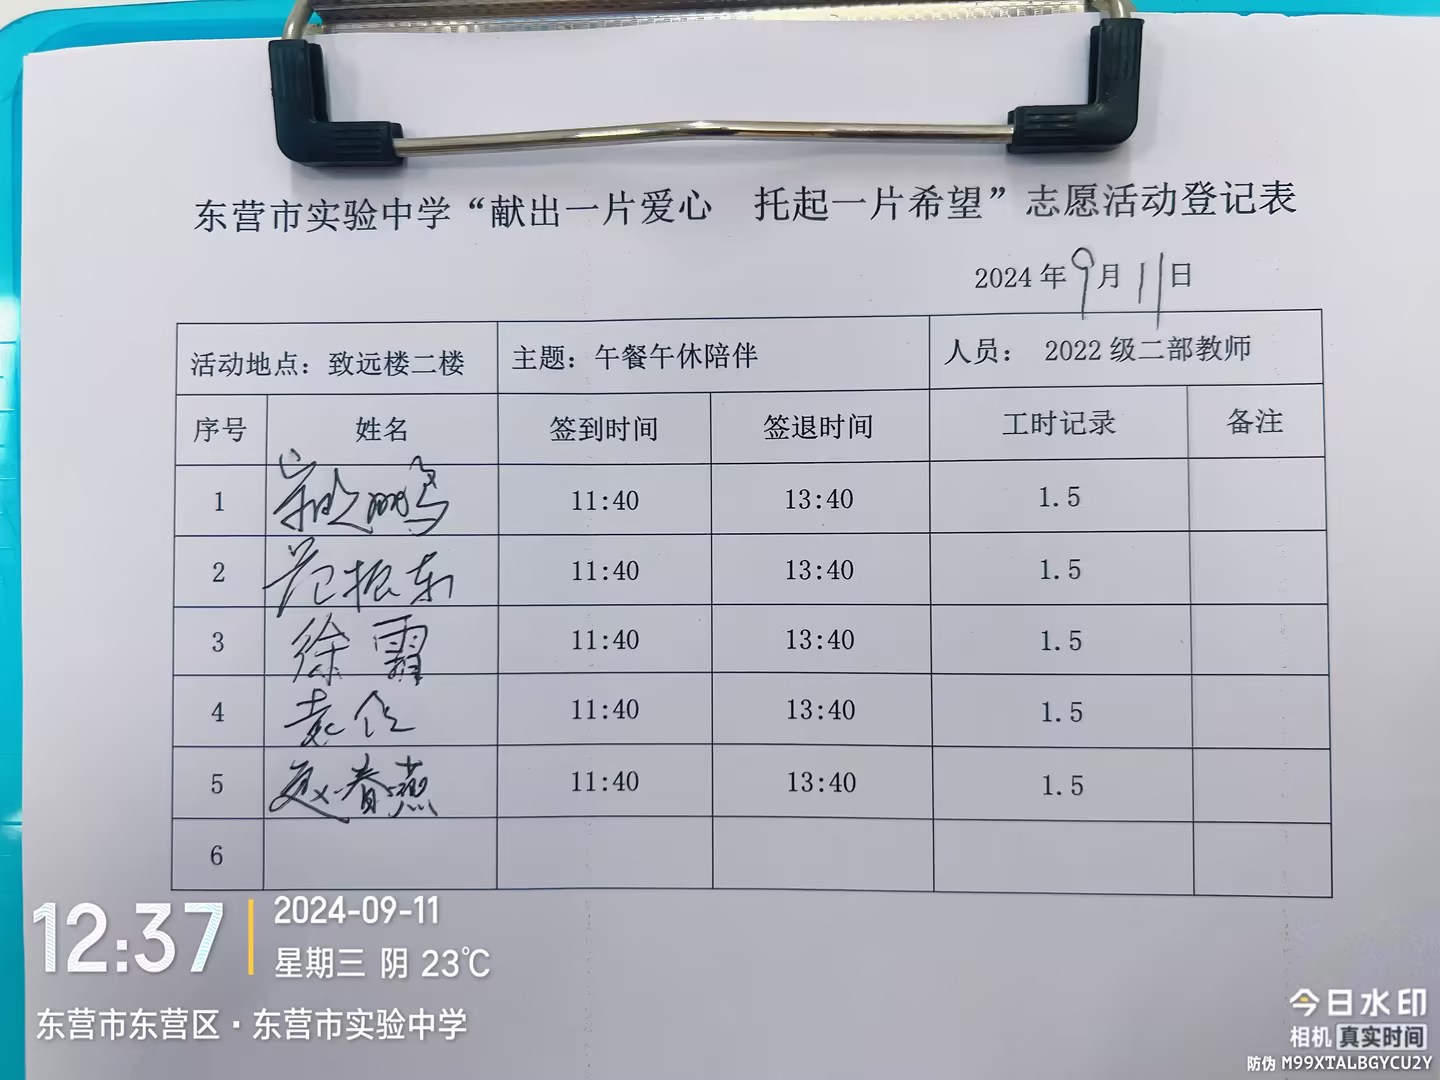 东营市实验中学“献出一片爱心　托起一片希望”志愿活动登记表
2024年9月11日
活动地点：致远楼二楼 主题：午餐午休陪伴 人员： 2022级二部教师
序号 姓名 签到时间 签退时间 工时记录 备注
1 11:40 13:40 1.5
2 范振东 11:40 13:40 1.5
3 徐霞 11:40 13:40 1.5
4 袁 11:40 13:40 1.5
5 赵春燕 11:40 13:40 1.5
6
12:37
2024-09-11
星期三 阴 23℃
东营市东营区·东营市实验中学
今日水印
相机 真实时间
防伪 M99XTALBGYCU2Y